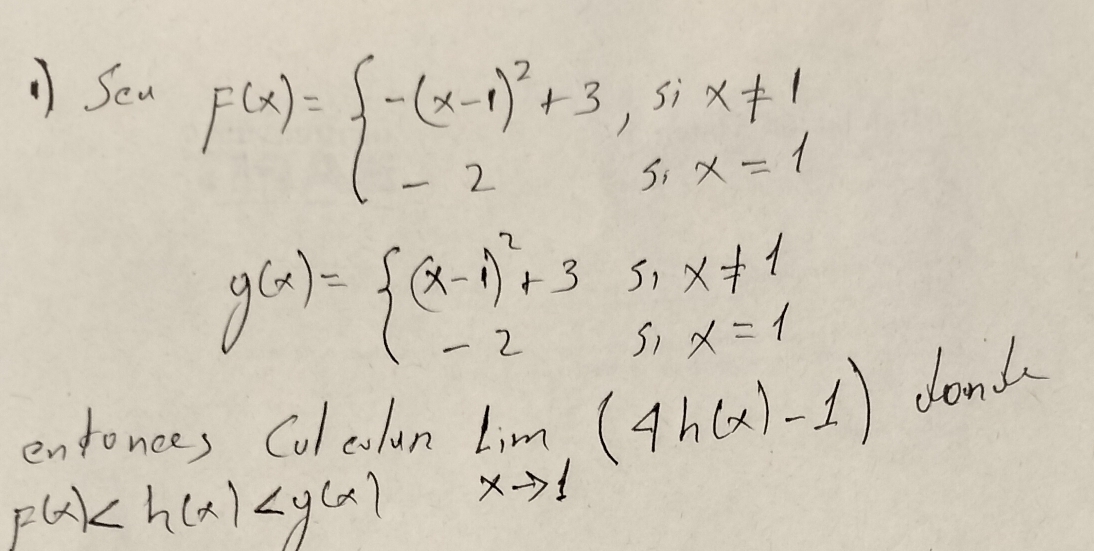 1) Sea F(x) = { -(x-1)² + 3, si x ≠ 1
- 2 si x = 1
g(x) = { (x-1)² + 3 si x ≠ 1
- 2 si x = 1
entonces Calcular Lim (4h(x) - 1) donde
F(x) < h(x) < g(x) x→1